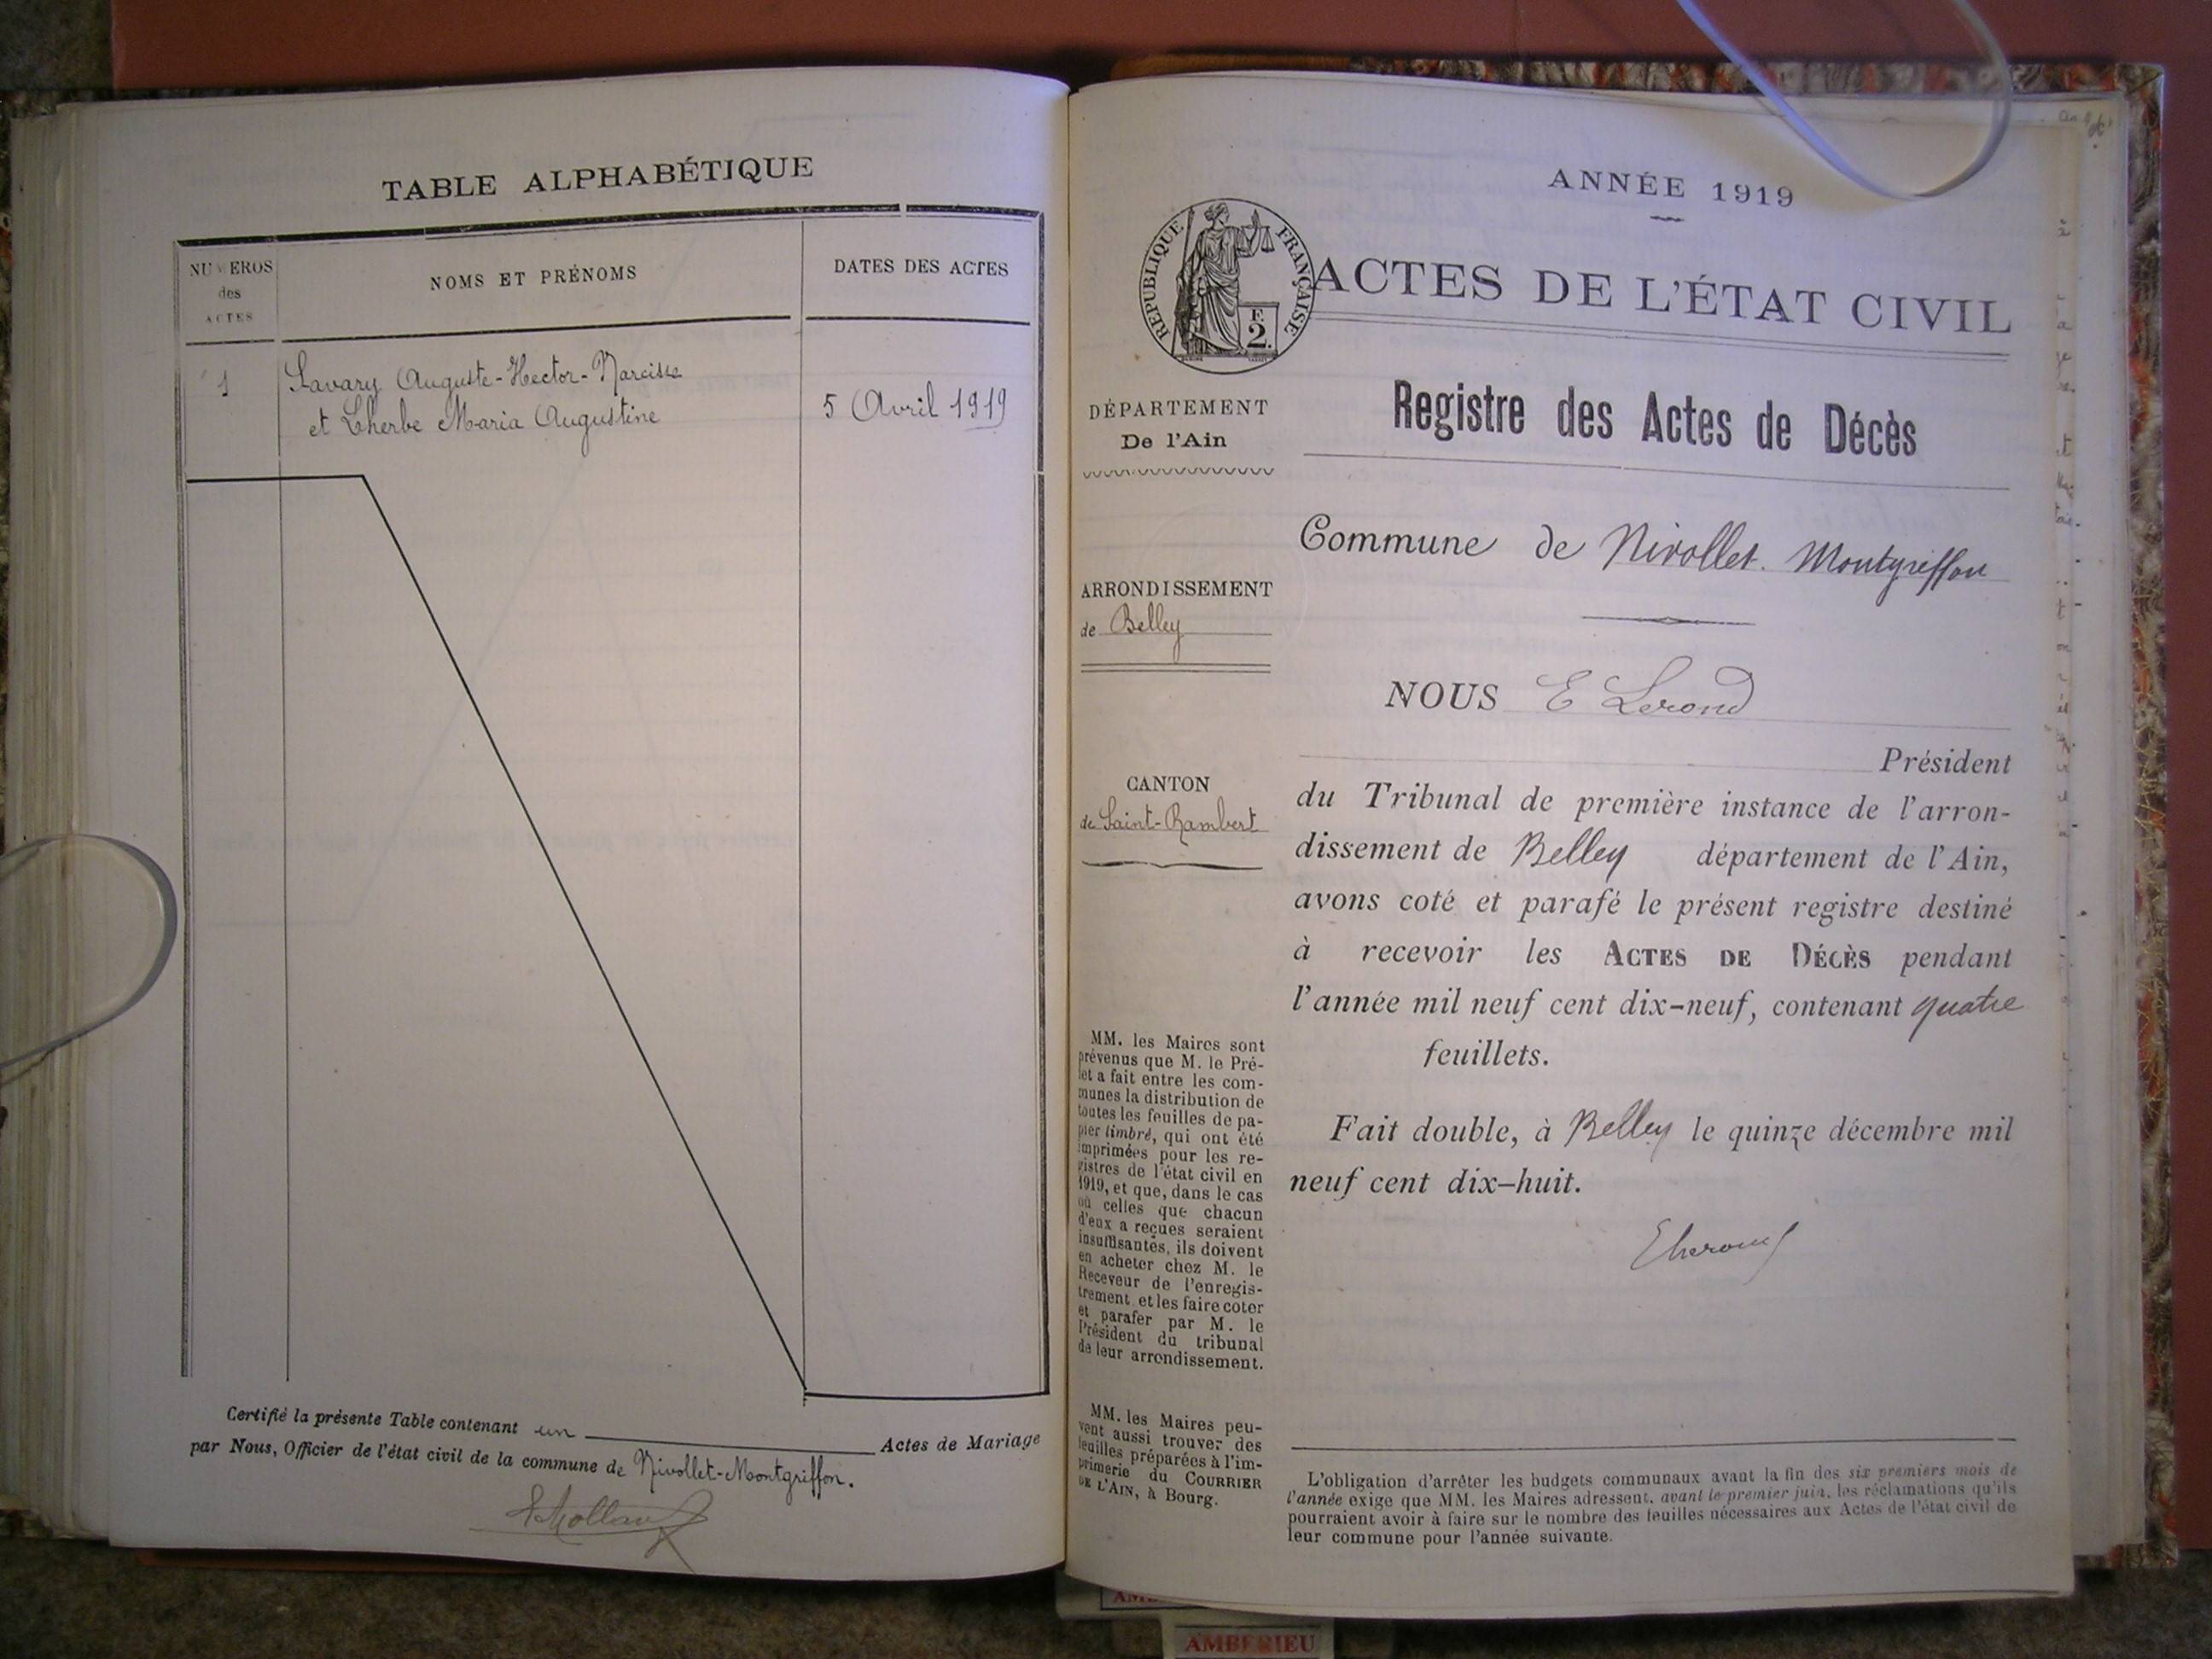 TABLE ALPHABÉTIQUE
NUMEROS
des
ACTES
NOMS ET PRÉNOMS
DATES DES ACTES
1
Savary Auguste-Hector-Narcisse
et Lherbe Maria Augustine
5 Avril 1919
Certifié la présente Table contenant un Actes de Mariage
par Nous, Officier de l'état civil de la commune de Nivollet-Montgriffon.
ANNÉE 1919
RÉPUBLIQUE FRANÇAISE
F.
2.
ACTES DE L'ÉTAT CIVIL
Registre des Actes de Décès
DÉPARTEMENT
De l'Ain
Commune de Nivollet. Montgriffon
ARRONDISSEMENT
de Belley
NOUS E Lerond
Président
CANTON
de Saint-Rambert
du Tribunal de première instance de l'arron-
dissement de Belley département de l'Ain,
avons coté et parafé le présent registre destiné
à recevoir les ACTES DE DÉCÈS pendant
l'année mil neuf cent dix-neuf, contenant quatre
feuillets.
Fait double, à Belley le quinze décembre mil
neuf cent dix-huit.
MM. les Maires sont
prévenus que M. le Pré-
fet a fait entre les com-
munes la distribution de
toutes les feuilles de pa-
pier timbré, qui ont été
imprimées pour les re-
gistres de l'état civil en
1919, et que, dans le cas
où celles que chacun
d'eux a reçues seraient
insuffisantes, ils doivent
en acheter chez M. le
Receveur de l'enregis-
trement et les faire coter
et parafer par M. le
Président du tribunal
de leur arrondissement.
MM. les Maires peu-
vent aussi trouver des
feuilles préparées à l'im-
primerie du COURRIER
DE L'AIN, à Bourg.
L'obligation d'arrêter les budgets communaux avant la fin des six premiers mois de
l'année exige que MM. les Maires adressent, avant le premier juin, les réclamations qu'ils
pourraient avoir à faire sur le nombre des feuilles nécessaires aux Actes de l'état civil de
leur commune pour l'année suivante.
AMBERIEU